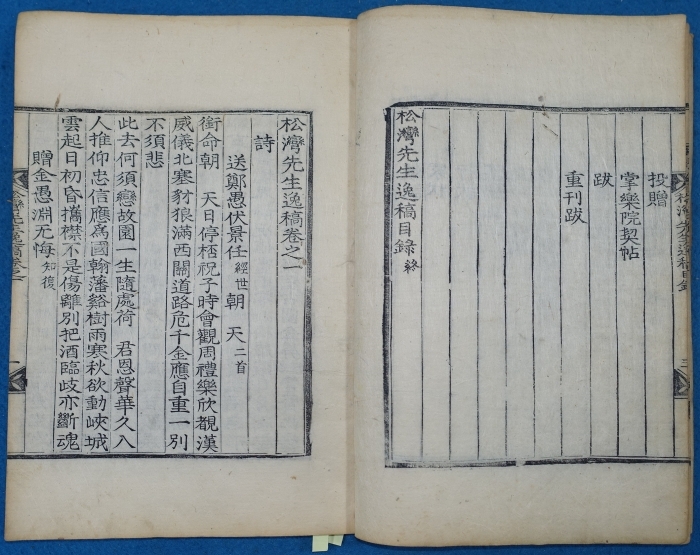 投贈
掌樂院契帖
跋
重刊跋
松灣先生逸稿目錄 終
松灣先生逸稿卷之一
詩
送鄭愚伏景任 經世 朝 天 二首
銜命朝 天日停桮祝子時會觀周禮樂欣覩漢
威儀北塞豺狼滿西關道路危千金應自重一別
不須悲
此去何須戀故園一生隨處荷 君恩聲華久入
人推仰忠信應爲國翰藩谿樹雨寒秋欲動峽城
雲起日初昏攜襟不是傷離別把酒臨歧亦斷魂
贈金愚淵无悔 知復